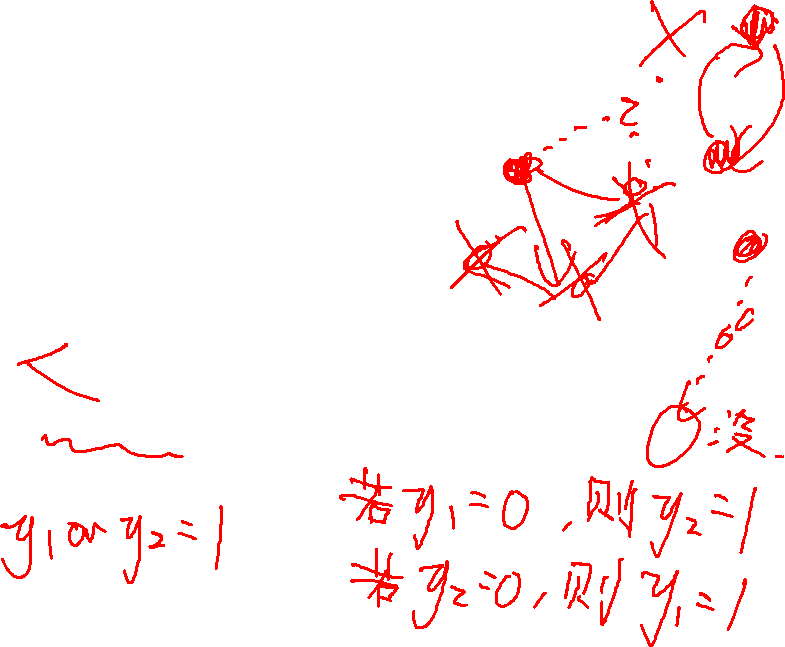 没
y₁ or y₂ = 1
若 y₁ = 0 , 则 y₂ = 1
若 y₂ = 0 , 则 y₁ = 1